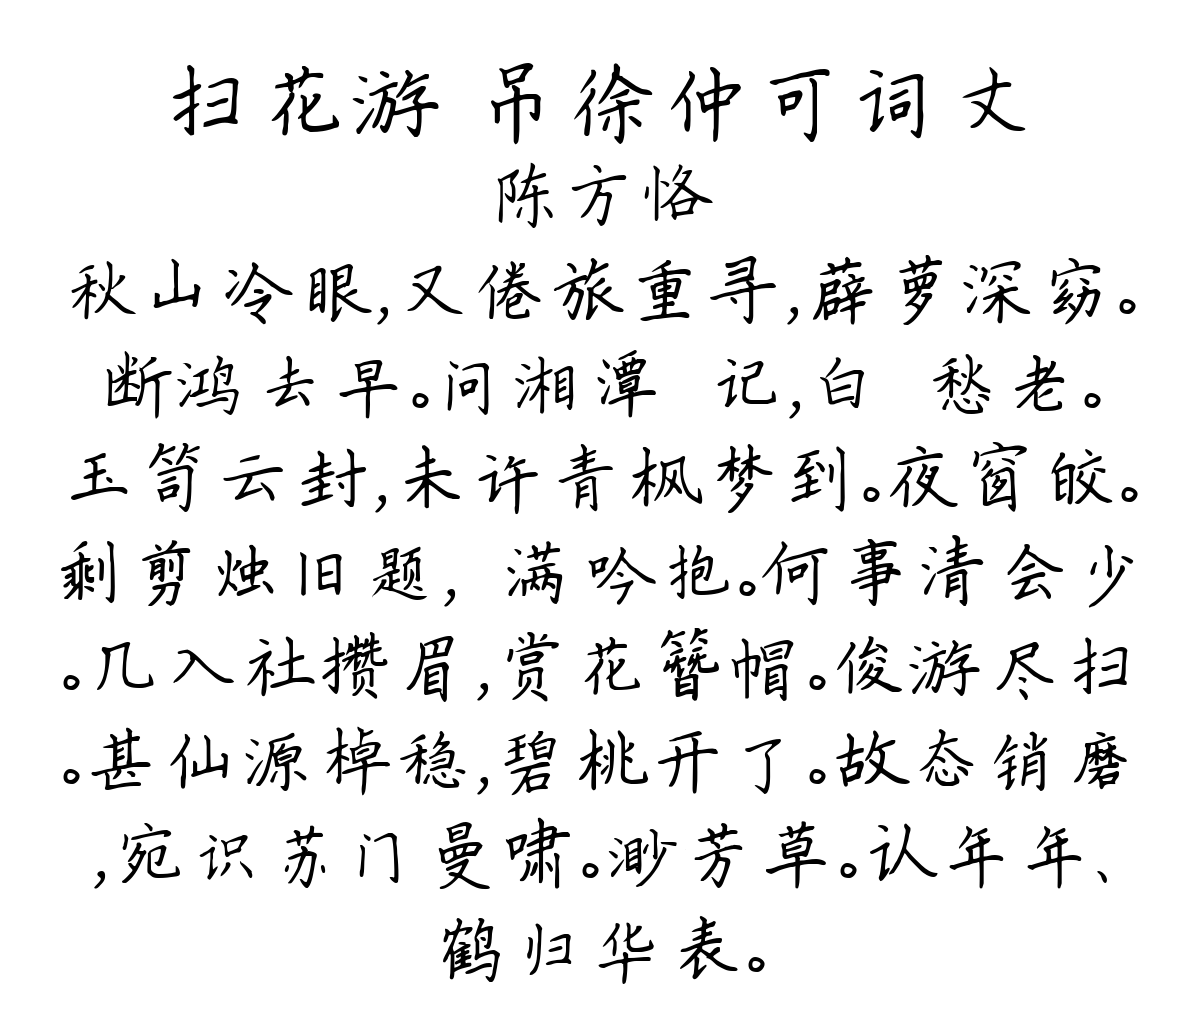 扫花游 吊徐仲可词丈
陈方恪
秋山冷眼,又倦旅重寻,薜萝深窈。
断鸿去早。问湘潭 记,白 愁老。
玉笥云封,未许青枫梦到。夜窗皎。
剩剪烛旧题, 满吟抱。何事清会少
。几入社攒眉,赏花簪帽。俊游尽扫
。甚仙源棹稳,碧桃开了。故态销磨
,宛识苏门曼啸。渺芳草。认年年、
鹤归华表。